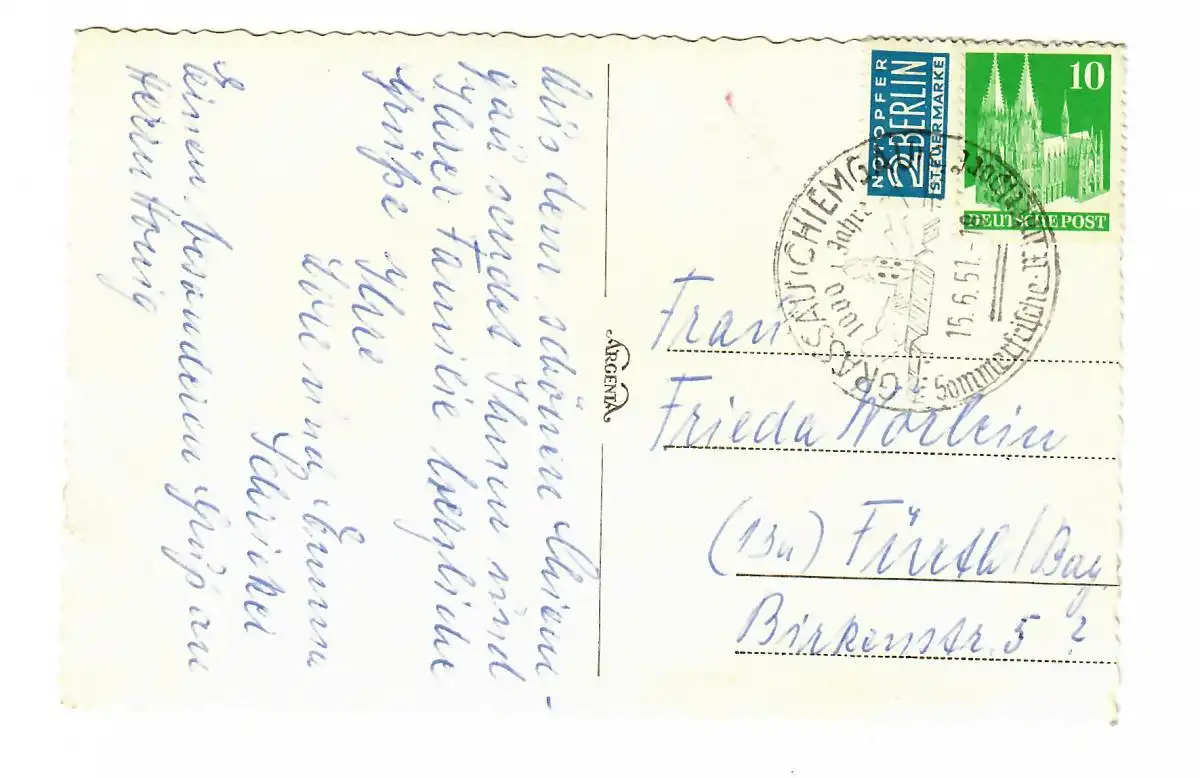 Aus dem schönen Chiem-
gau sendet Ihnen und
Ihrer Familie herzliche
Grüße Ihre
Lore und Emma
Schrickel
Einen besonderen Gruß an
Herrn Hönig
NOTOPFER
2 BERLIN
STEUERMARKE
10
DEUTSCHE POST
GRASSAU/CHIEMGAU
1000 Jahre
16.6.51.-18
Sommerfrische
ARGENTA
Frau
Frieda Nörlein
(13a) Fürth/Bay.
Birkenstr. 5 ?